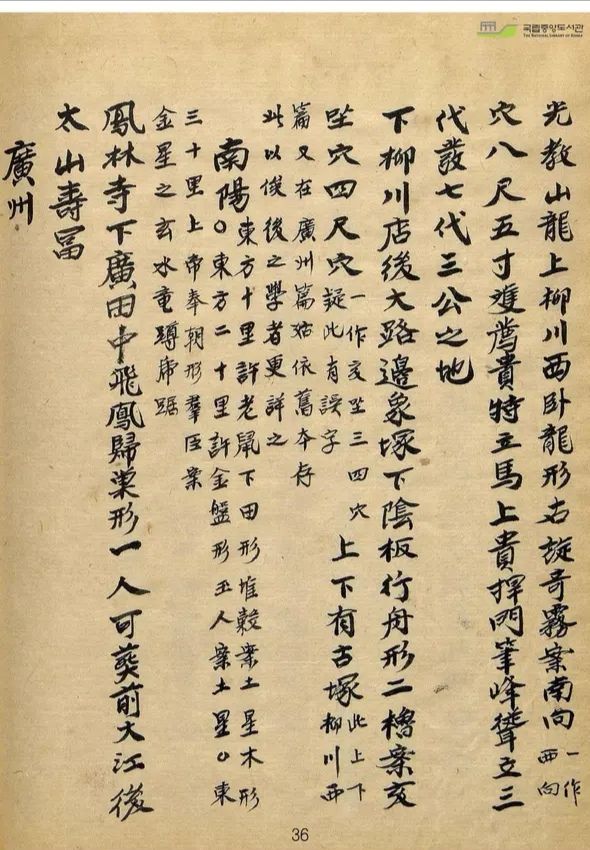 국립중앙도서관
THE NATIONAL LIBRARY OF KOREA
光教山龍上柳川西卧龍形右旋奇霧案南向一作西向
穴八尺五寸雙薦貴特立馬上貴揮門筆峰聳立三
代發七代三公之地
下柳川店後大路邊象塚下陰板行舟形二櫓案亥
坐穴四尺穴一作亥坐三四穴疑此有誤字上下有古塚此上下柳川西
篇又在廣州篇姑依舊本存
此以俟後之學者更詳之
南陽東方十里許老鼠下田形堆穀案土星木形
○東方二十里許金盤形玉人案土星○東
三十里上帝奉朝形羣臣案
金星之玄水重蹲席踞
鳳林寺下廣田中飛鳳歸巢形一人可葬前大江後
太山壽冨
廣州
36